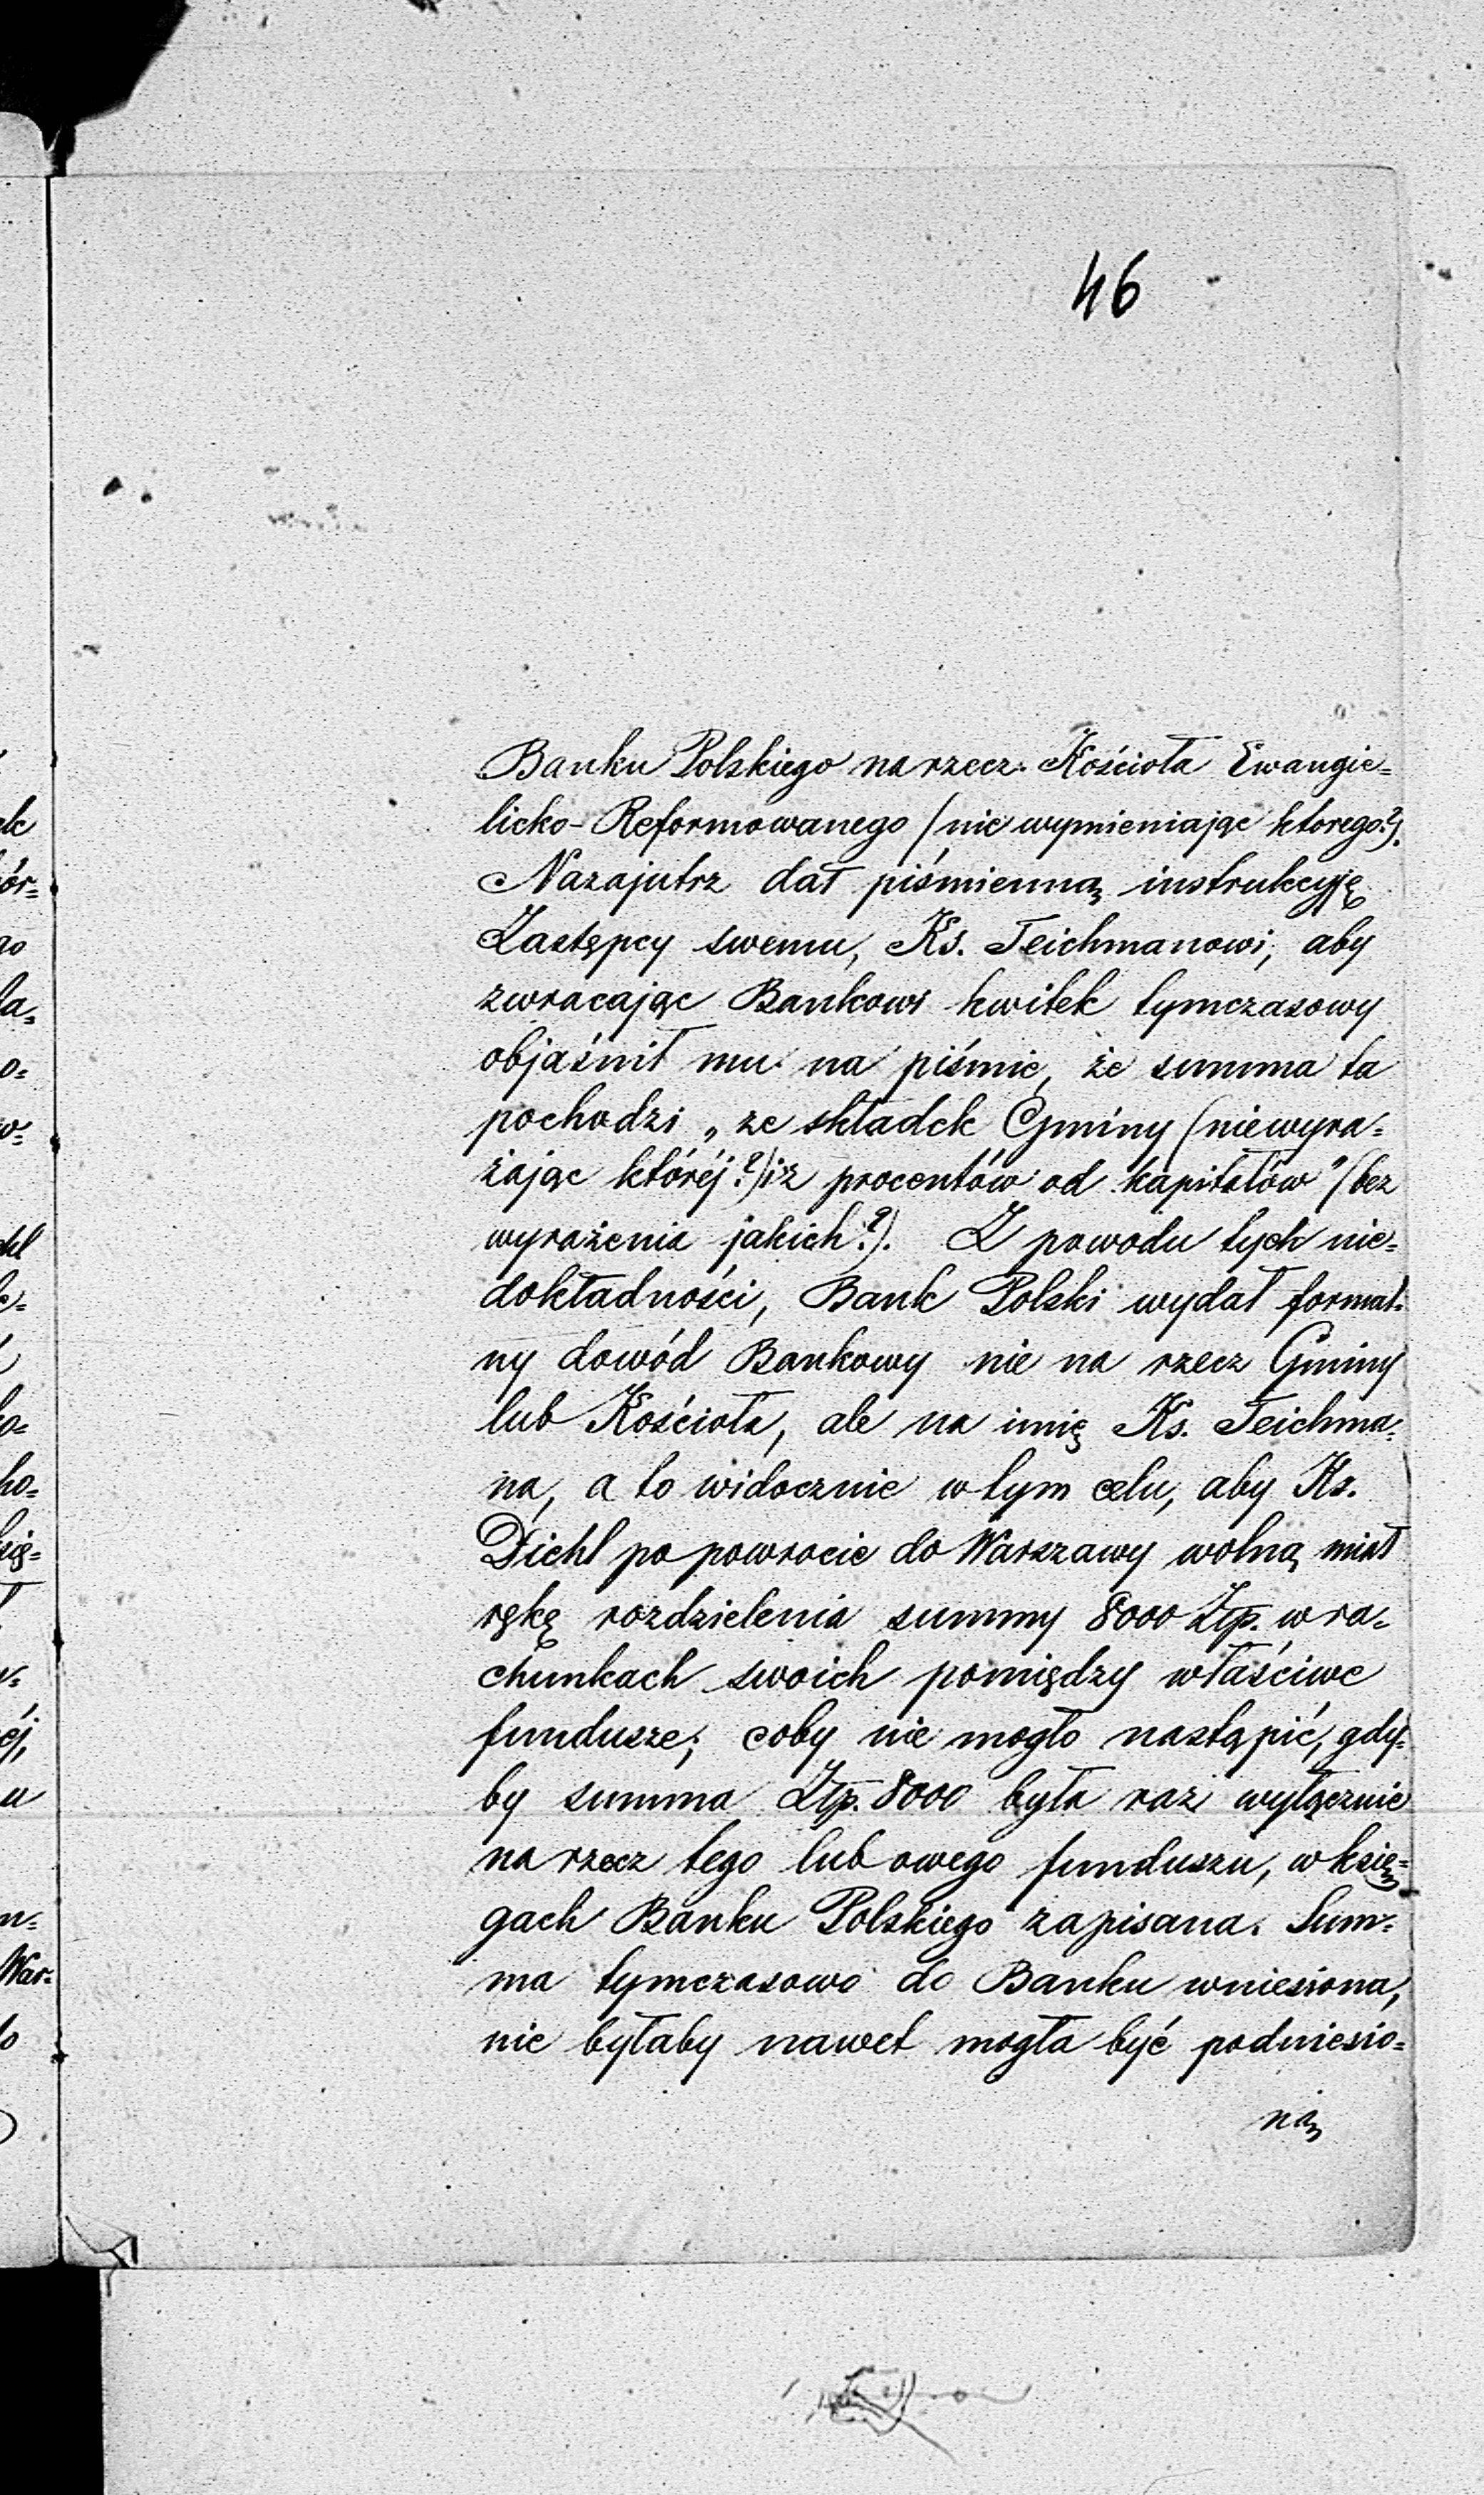 46
Banku Polskiego na rzecz Kościoła Ewangie=
licko-Reformowanego (nie wymieniając ktorego?).
Nazajutrz dał piśmienną instrukcyję
Zastępcy swemu, Ks. Teichmanowi, aby
zwracając Bankowi kwitek tymczasowy
objaśnił mu na piśmie, że summa ta
pochodzi „ze składek Gminy (niewyra=
żając któréj?) i z procentów od kapitałów" (bez
wyrażenia jakich?). Z powodu tych nie=
dokładności, Bank Polski wydał formal=
ny dowód Bankowy nie na rzecz Gminy
lub Kościoła, ale na imię Ks. Teichma=
na, a to widocznie w tym celu, aby Ks.
Diehl po powrocie do Warszawy wolną miał
rękę rozdzielenia summy 8000 Złp. w ra=
chunkach swoich pomiędzy właściwe
fundusze; coby nie mogło nastąpić, gdy=
by summa Złp. 8000 była raz wyłącznie
na rzecz tego lub owego funduszu, w księ=
gach Banku Polskiego zapisana. Sum=
ma tymczasowo do Banku wniesiona,
nie byłaby nawet mogła być podniesio=
ną